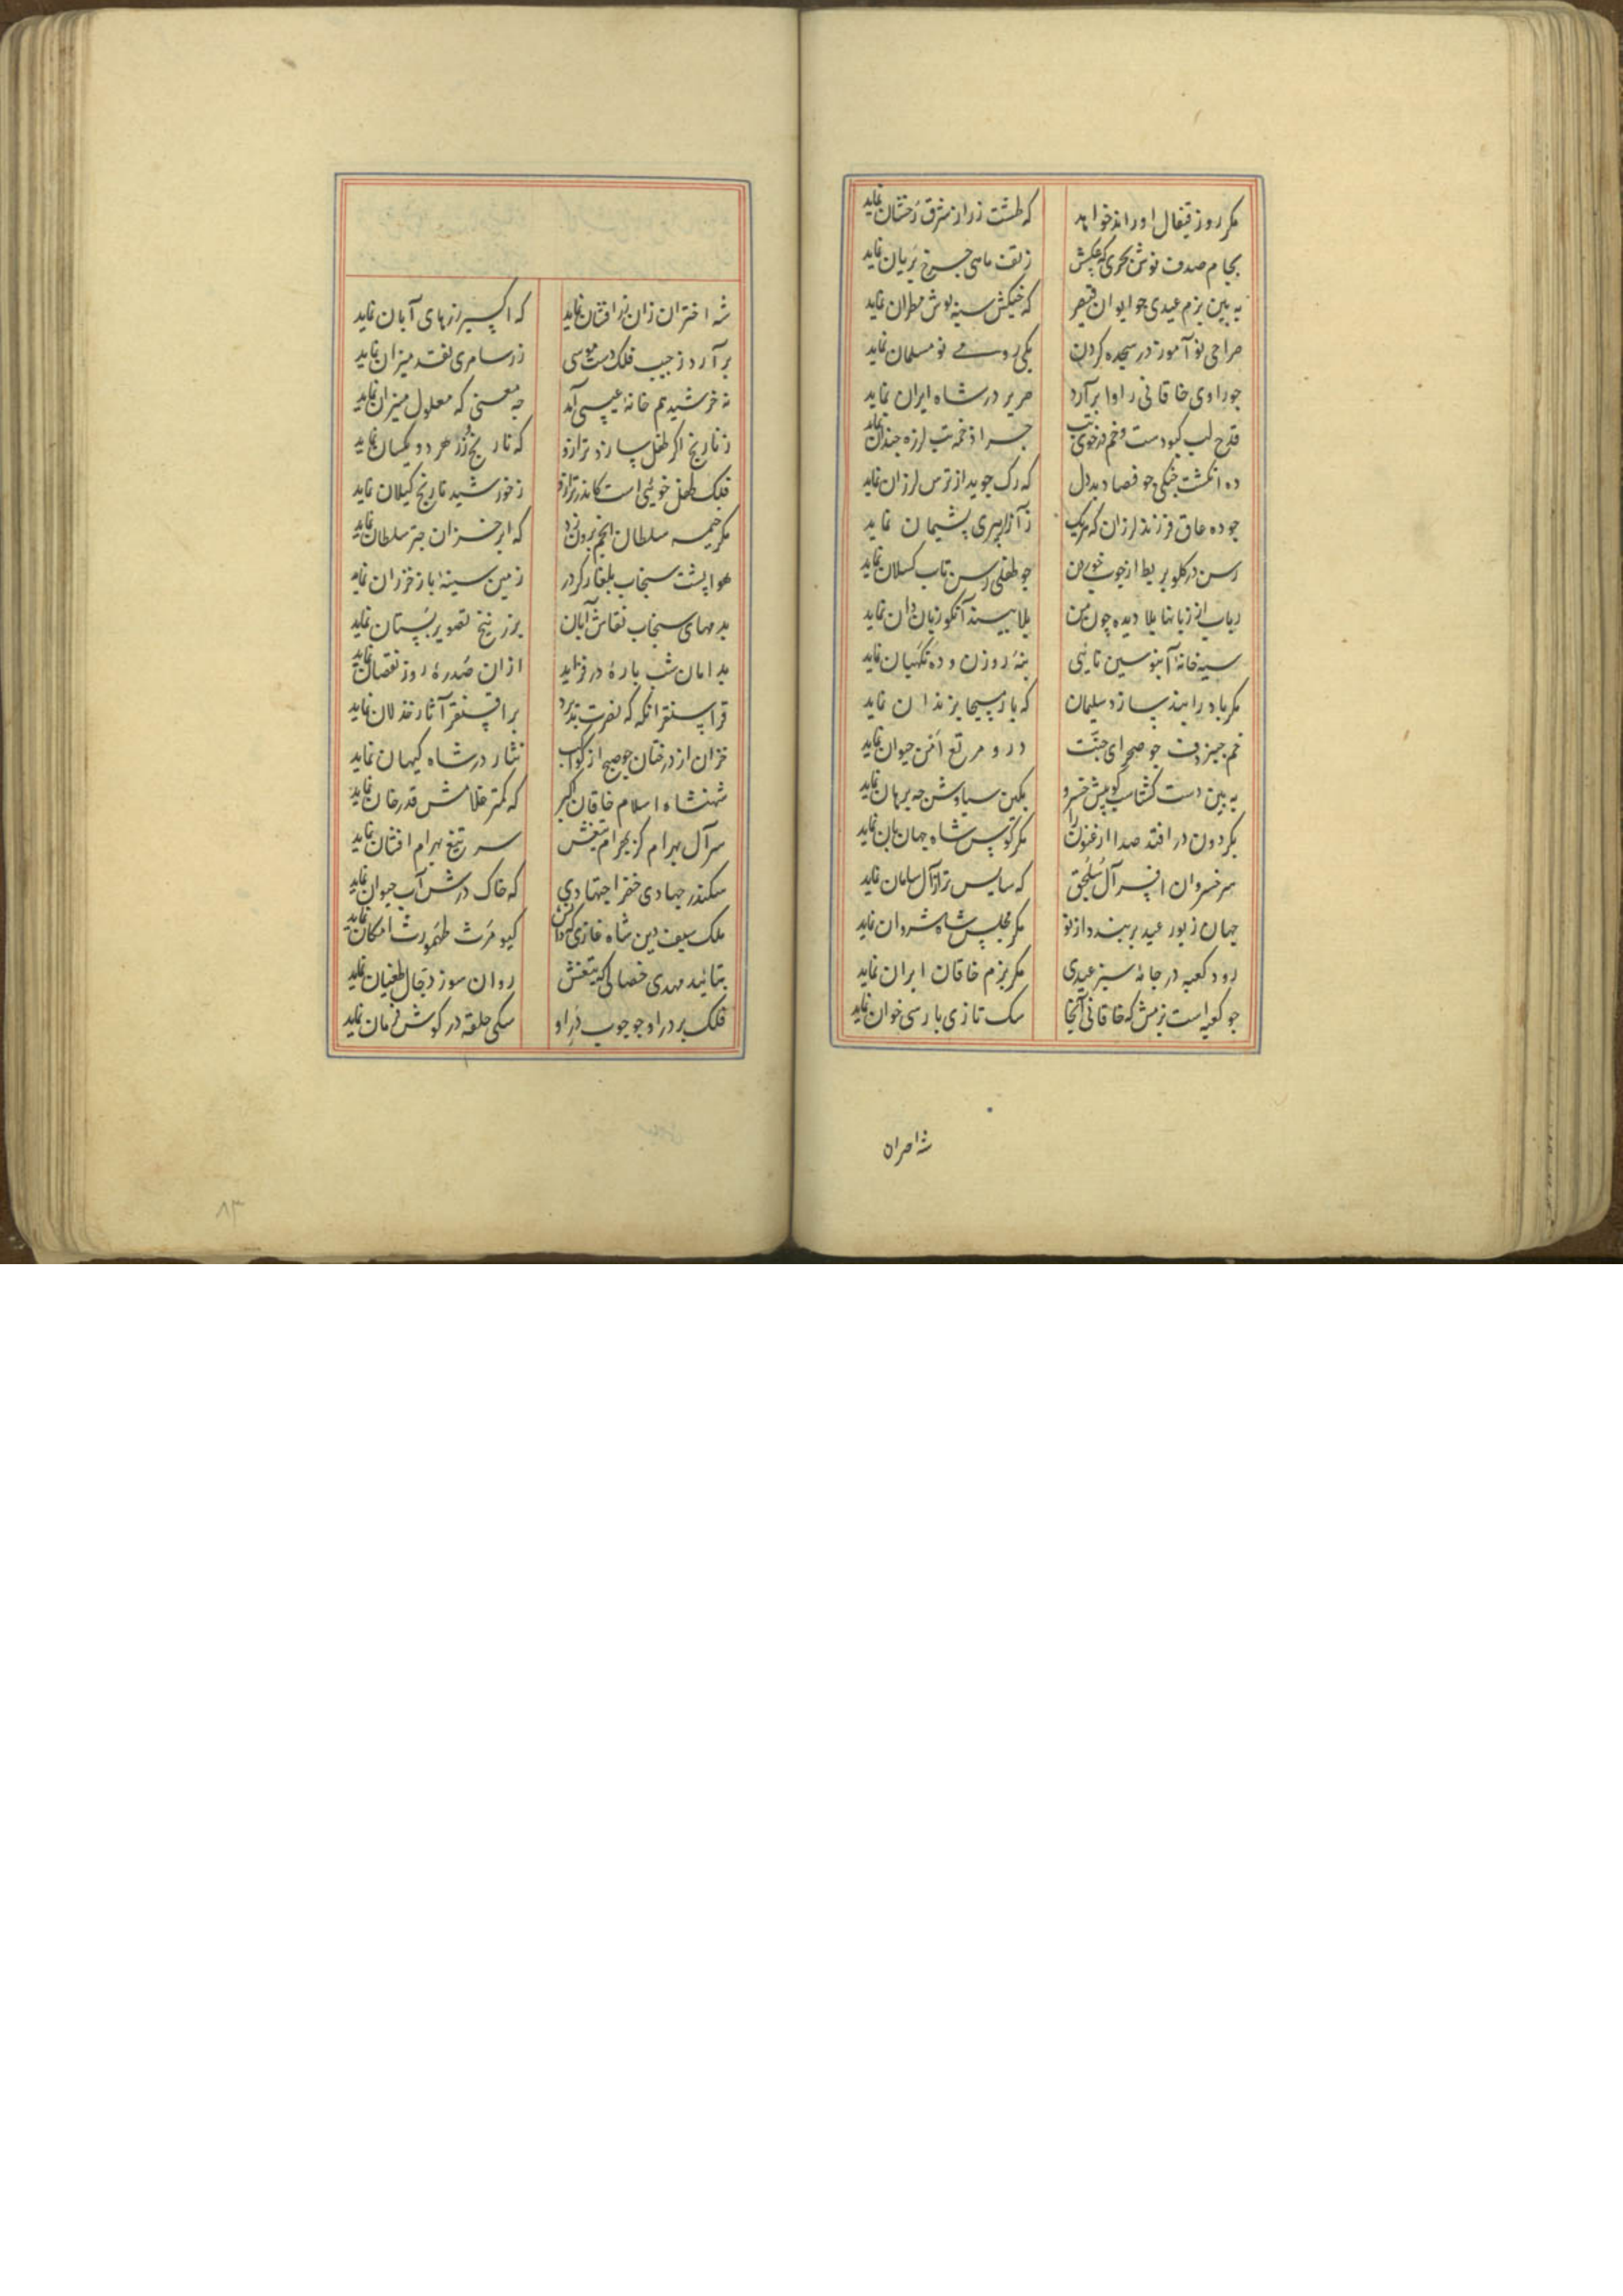 مکر روز قیفال او راند خواهد که طشت زر از شرق رخشان نماید
بجام صدف نوش بحری که عکسش ز تف ماهی چرخ بریان نماید
به بین بزم عیدی جو ایوان قیصر که خنکش سینه‌ پوش مطران نماید
صراحی نو آموز در سجده کردن یکی رومی نو مسلمان نماید
جو راوی خاقانی راوا برآرد صریر در شاه ایران نماید
قدح لب کبودست و خم در خوی تب جرا زخمه تب لرزه جندان نماید
ده انکشت جنکی جو فصاد بددل که رک جوید از ترس لرزان نماید
جو ده عاق فرزند لرزان که هریک ز آزار پیری پشیمان نماید
رسن در کلو بربط از جوب خوردن جو طفلی رسن تاب کسلان نماید
رباب از زبانها بلا دیده چون من بلا بیند آنکو زبان دان نماید
سیه خانهٔ آبنوسین نائی بنه روزن و ده نکهبان نماید
مکر باد را بند سازد سلیمان که باز مسیحا بزندان نماید
خم جنبر دف جو صحرای جنت درو مرتع امن حیوان نماید
به بین دست کشتاسب کو پیش خسرو بکین سیاوش جه برهان نماید
بکردون در افتد صدا ارغنون را مکر کوس شاه جهان بان نماید
سر خسروان افسر آل سلجق که سایس تر از آل سامان نماید
جهان زیور عید بربندد از نو مکر مجلس شاه شروان نماید
رود کعبه در جامهٔ سبز عیدی مکر بزم خاقان ایران نماید
جو کعبه است بزمش که خاقانی آنجا سک تازی بارسی خوان نماید
شه اختران
شه اختران زان زر افشان نماید که اکسیر زرهای آبان نماید
برآرد ز جیب فلک دست موسی زر سامری نقد میزان نماید
نه خرشید هم خانهٔ عیسی آمد جه معنی که معلول میزان نماید
ز نارنج اکر طفل سازد ترازو که نارنج و زر هر دو یکسان نماید
فلک طفل خوئی است کاندر ترازو ز خورشید نارنج کیلان نماید
مکر خیمه سلطان انجم برون زد که ابر خزان جتر سلطان نماید
هوا پشت سنجاب بلغار کردر زمین سینهٔ باز خزران نماید
بدمهای سنجاب نقاش آبان برزنیخ تصویر بستان نماید
بدامان شب بارهٔ در فزاید ازان صدرهٔ روز نقصان نماید
قراسنقر آنکه که نصرت پذیرد بر اقسنقر آثار خذلان نماید
خزان از درختان جو صبح از کواکب نثار در شاه کیهان نماید
شهنشاه اسلام خاقان اکبر که کمتر غلامش قدرخان نماید
سر آل بهرام کز بهرام تیغش سر تیغ بهرام افشان نماید
سکندر جهادی خضر اجتهادی که خاک درش آب حیوان نماید
ملک سیف دین شاه غازی کیومرث طهمورث امکان نماید
بتائید مهدی خصالی که تیغش روان سوز دجال طغیان نماید
فلک بر در او جو جوب در او سکی حلقه در کوش فرمان نماید
۸۳